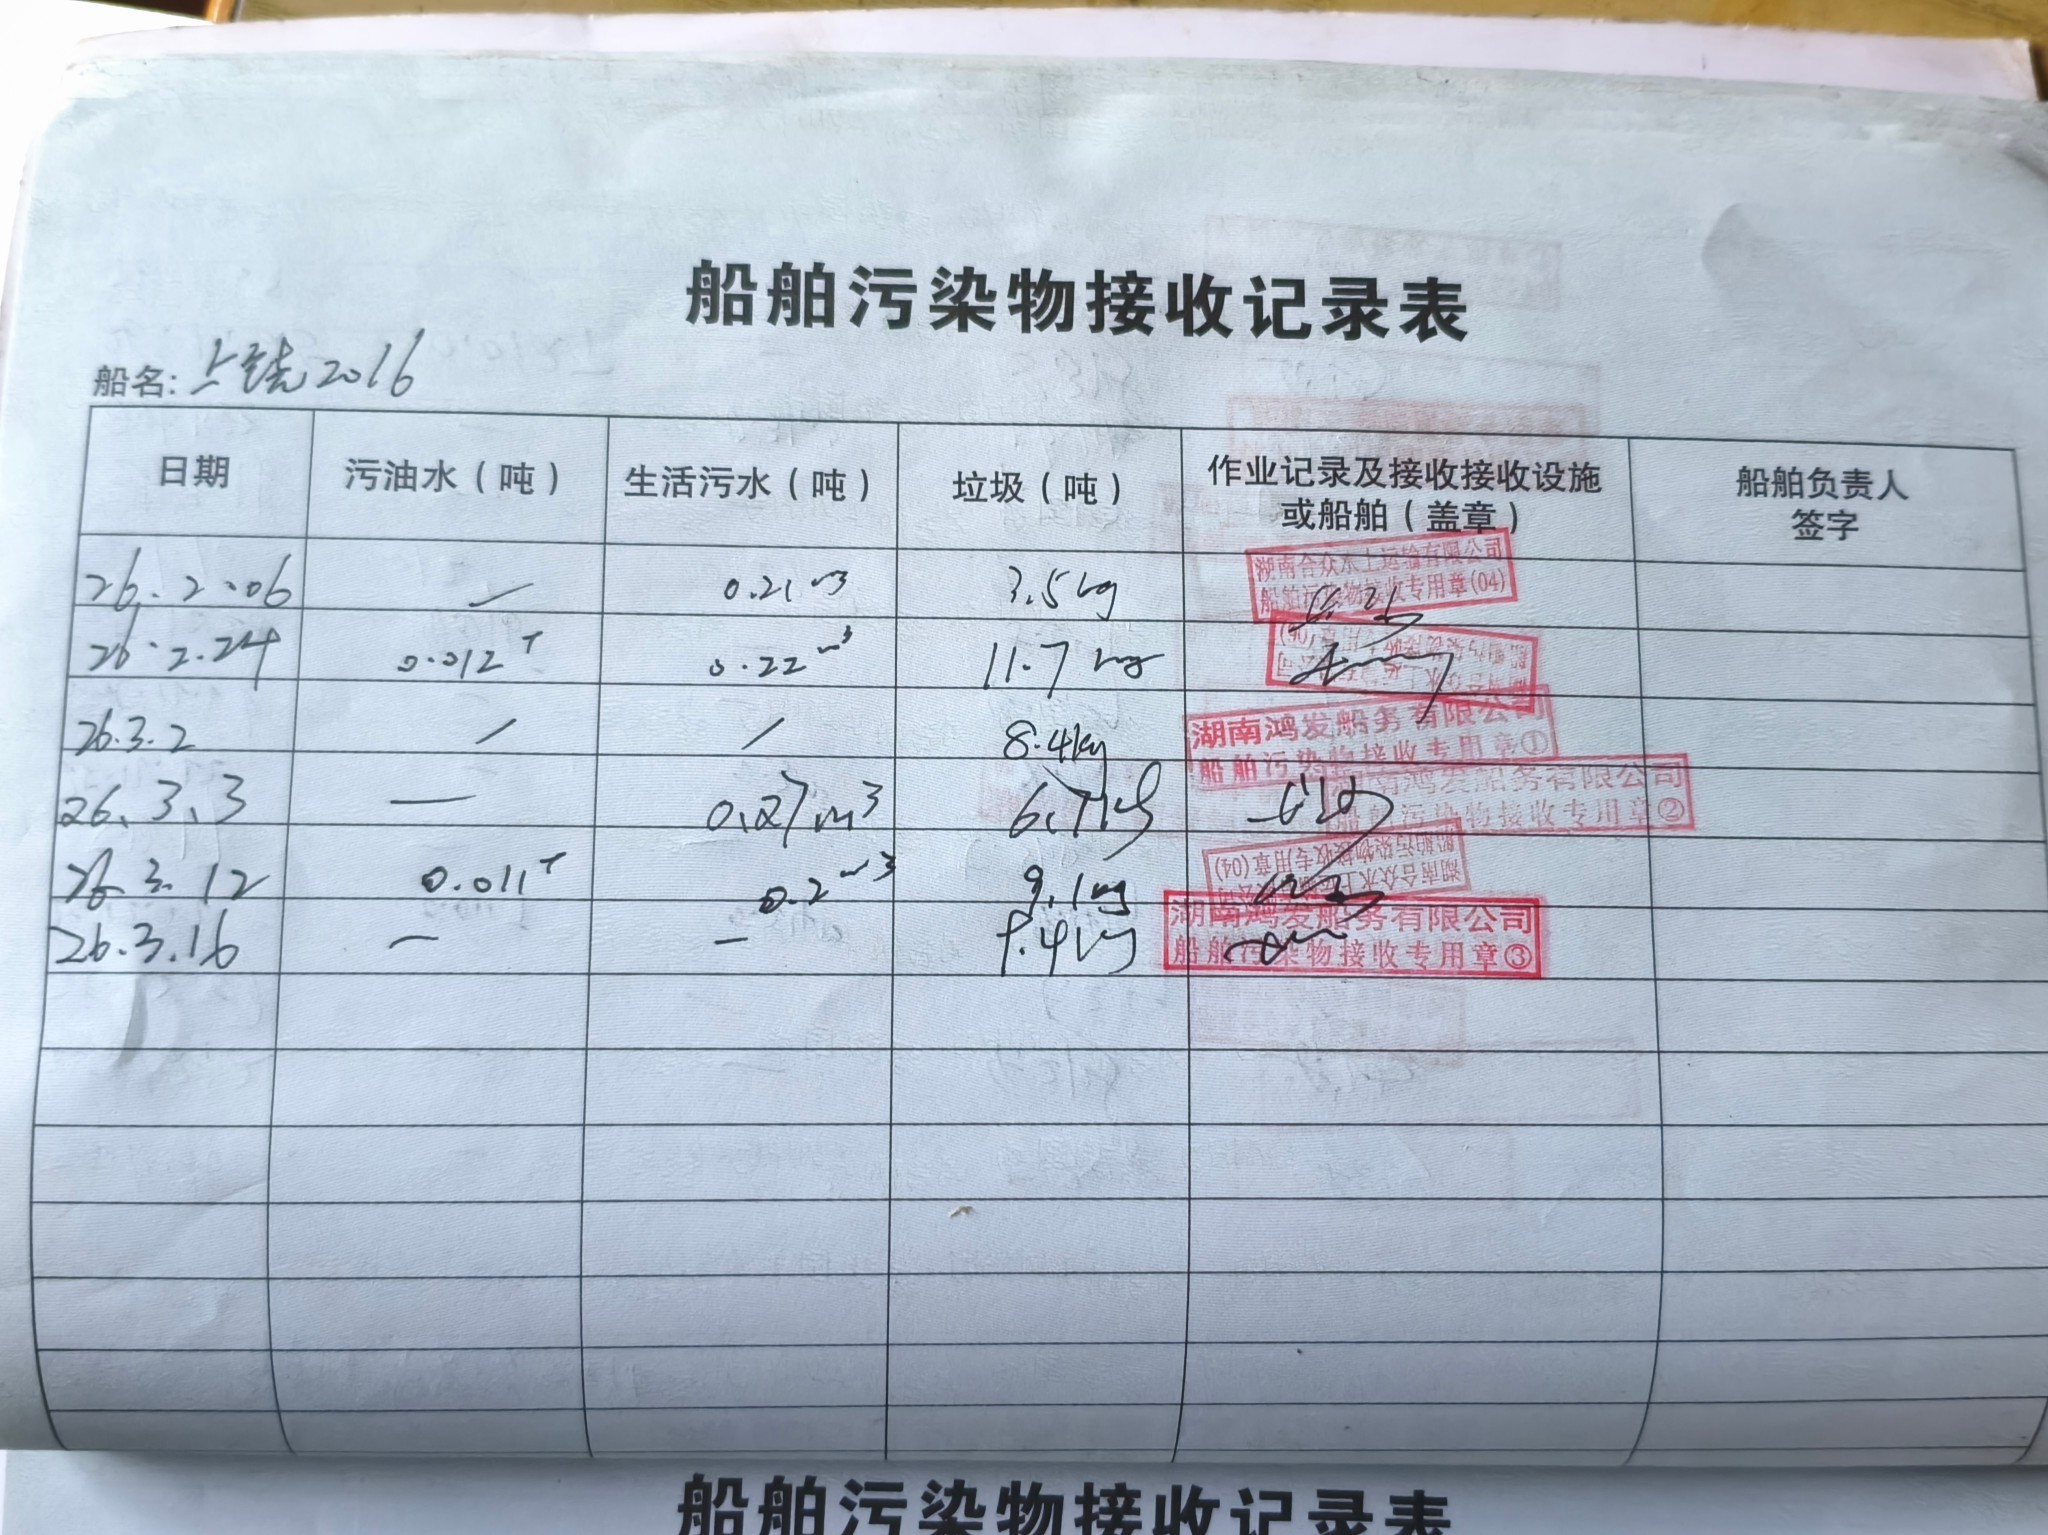 船舶污染物接收记录表
船名: 上 2016
日期 污油水（吨） 生活污水（吨） 垃圾（吨） 作业记录及接收接收设施或船舶（盖章） 船舶负责人签字
26.2.06 — 0.21m3 3.5kg 湖南合众水上运输有限公司
船舶污染物接收专用章(04)
26.2.24 0.012T 0.22m3 11.7kg
26.3.2 / / 8.4kg 湖南鸿发船务有限公司
船舶污染物接收专用章①
26.3.3 — 0.27m3 湖南鸿发船务有限公司
船舶污染物接收专用章②
26.3.12 0.011T 0.2m3 9.1kg 湖南合众水上运输有限公司
船舶污染物接收专用章(04)
26.3.16 — — 9.4kg 湖南鸿发船务有限公司
船舶污染物接收专用章③
船舶污染物接收记录表